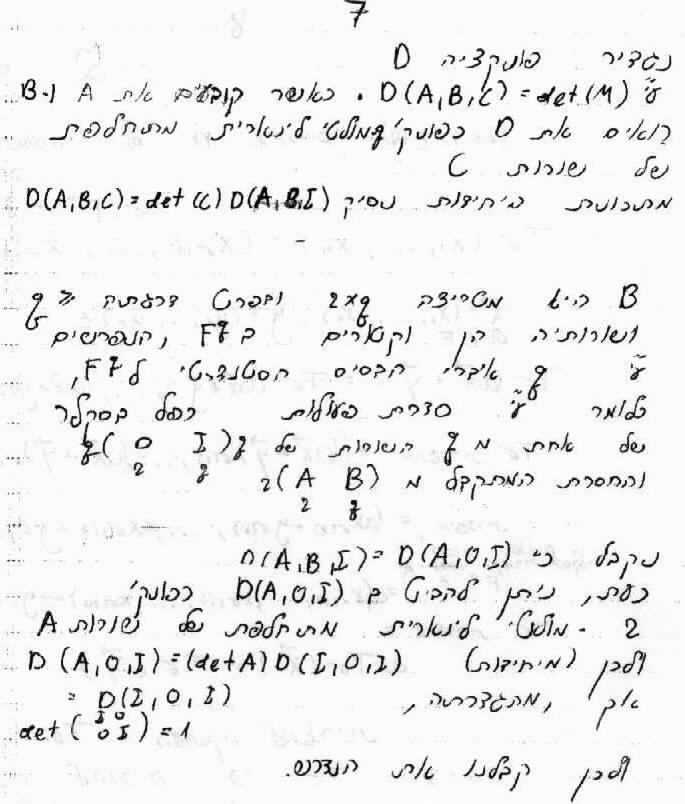 7
נגדיר פונקציה D
ע"י D(A,B,C) = det(M). כאשר קובעים את A ו-B
רואים את D כפונק' q מולטי לינארית מתחלפת
של שורות C
מתכונת היחידות נסיק D(A,B,C) = det(C) D(A,B,I)
B היא מטריצה 2xq ובפרט דרגתה ≤ q
ושורותיה הן וקטורים ב Fq, הנפרשים
ע"י q איברי הבסיס הסטנדרטי ל Fq,
כלומר ע"י סדרת פעולות כפל בסקלר
של אחת מ q השורות של q(0 I)q
2 q
והחסרת המתקבל מ 2(A B)
2 q
נקבל כי D(A,B,I) = D(A,0,I)
כעת, ניתן להביט ב D(A,0,I) כפונק'
2 - מולטי לינארית מתחלפת של שורות A
ולכן (מיחידות) D(A,0,I) = (det A) D(I,0,I)
אך, מהגדרתה, D(I,0,I) =
det(I 0 0 I) = 1
ולכן קבלנו את הנדרש.